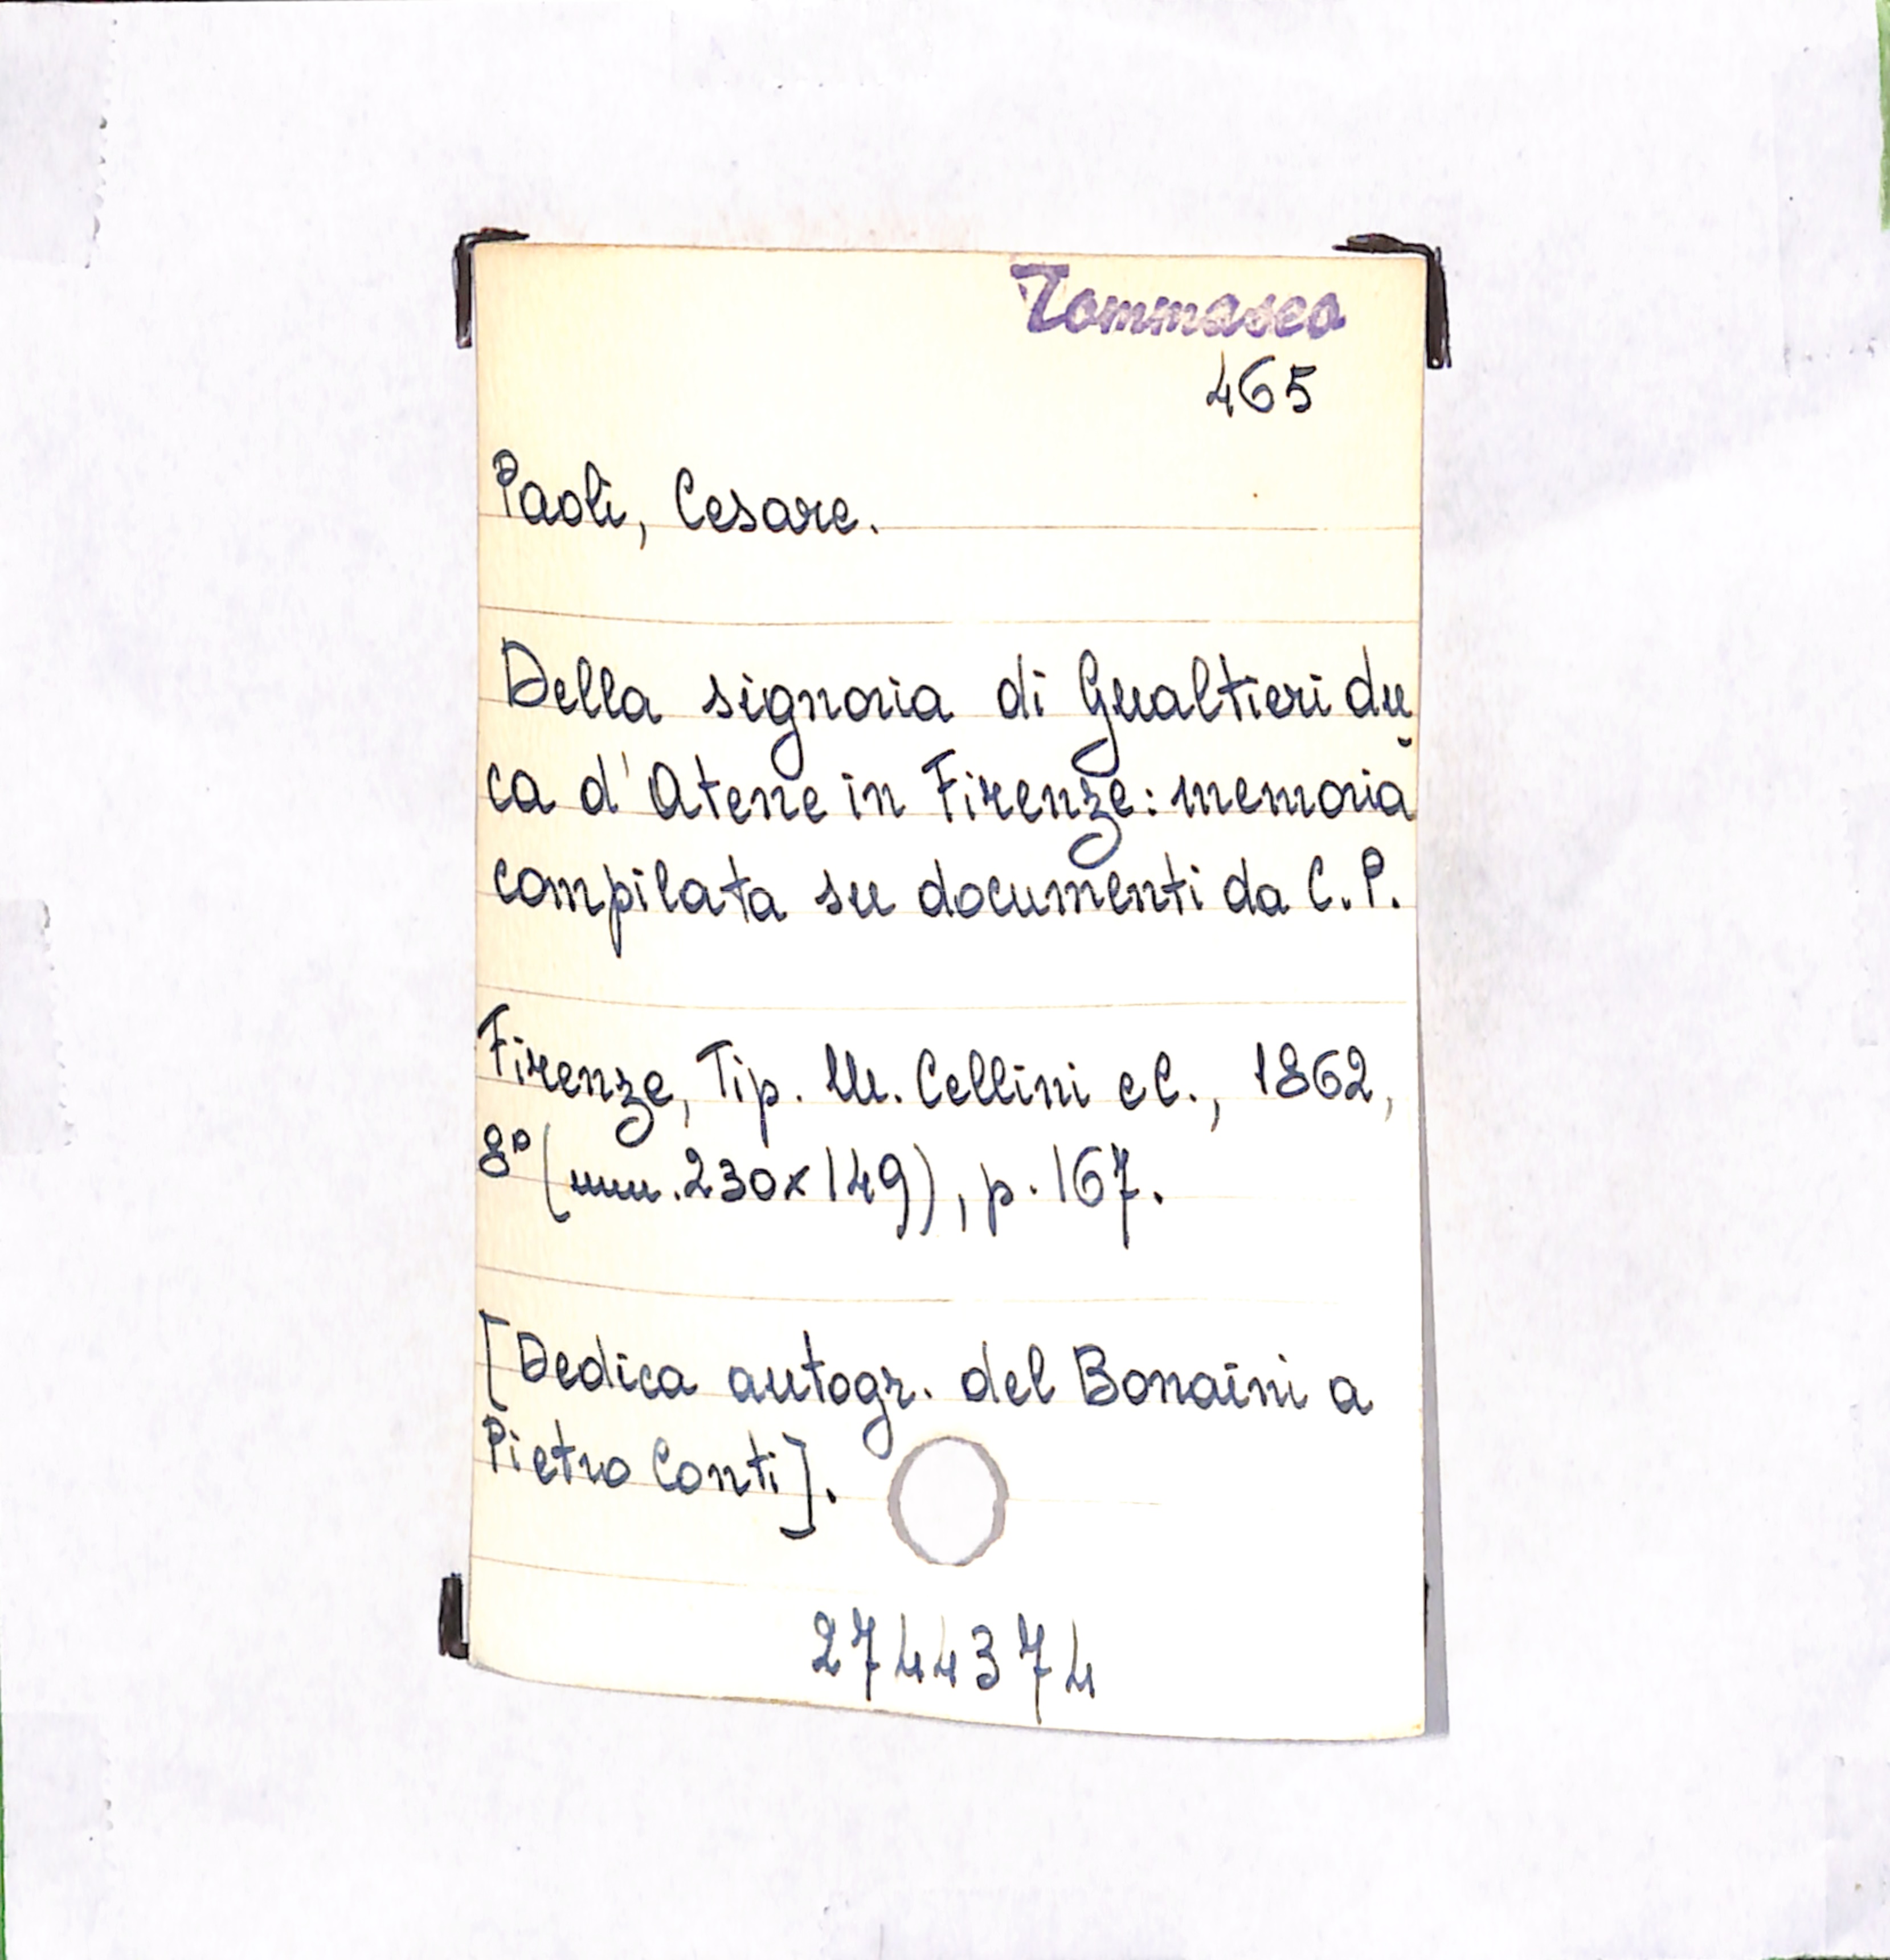 Tommaseo
465
Paoli, Cesare.
Della signoria di Gualtieri du
ca d'Atene in Firenze: memoria
compilata su documenti da C. P.
Firenze, Tip. M. Cellini e C., 1862,
8° (mm. 230x149), p. 167.
[Dedica autogr. del Bonaini a
Pietro Conti].
2744374